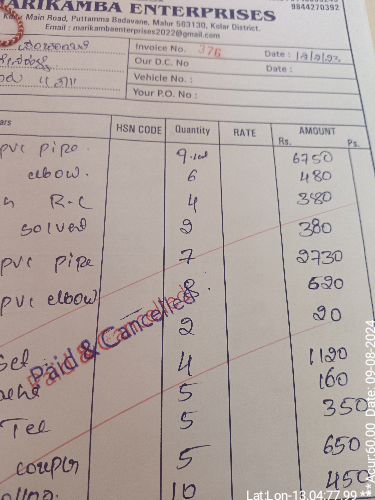 ARIKAMBA ENTERPRISES
Main Road, Puttamma Badavane, Malur 563130, Kolar District.
9844270392
Email : marikambaenterprises2022@gmail.com
Invoice No. 376 Date :
Our D.C. No Date :
Vehicle No. :
Your P.O. No :
ars HSN CODE Quantity RATE AMOUNT
Rs. Ps.
PVC pipe. 6750
elbow. 6 480
R-C 4 380
solvent 2 380
PVC pipe 7 2730
PVC elbow 8 520
2 20
Paid & Cancelled
Set 4 1120
5 160
Tee 5 350
coupler 5 650
10 450
Lat:Lon-13.04:77.99 ** Acur:60.00 Date: 09-08-2024